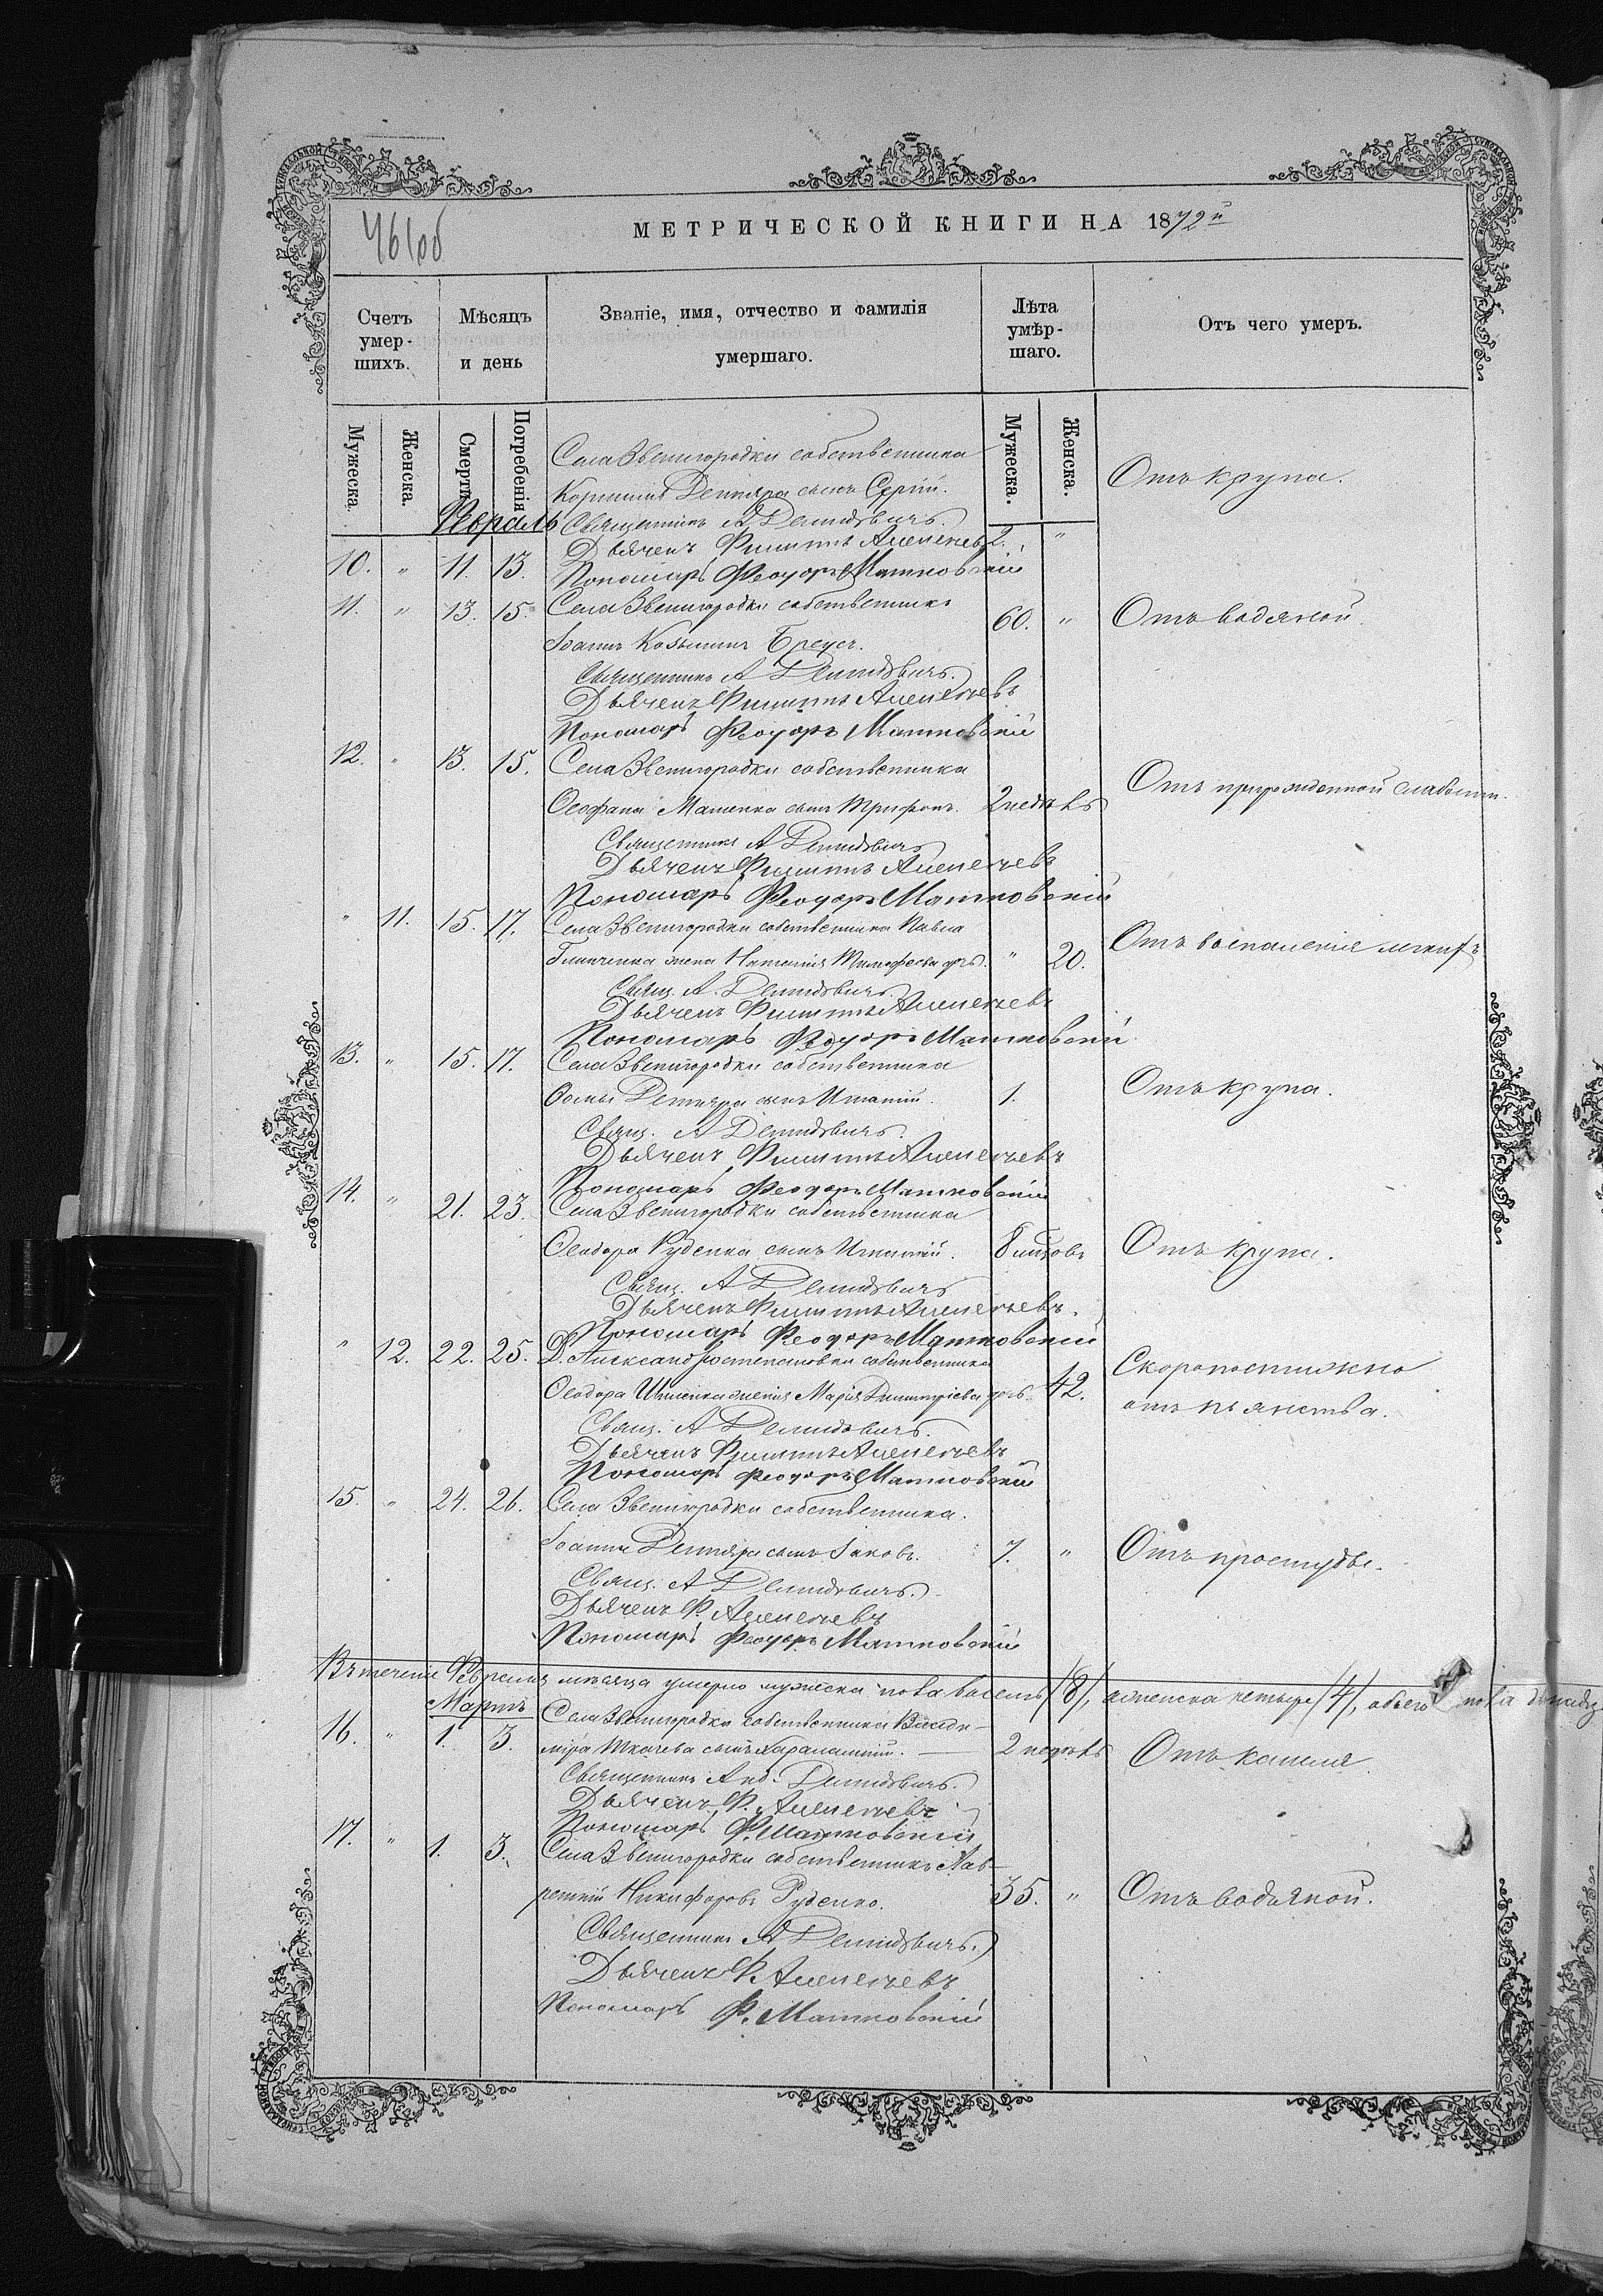 461об
МЕТРИЧЕСКОЙ КНИГИ НА 1872й
Счетъ умер-шихъ.
Мѣсяцъ и день
Званіе, имя, отчество и фамилія умершаго.
Лѣта умѣр-шаго.
Отъ чего умеръ.
Мужеска.
Женска.
Смерти
Погребенія
Мужеска.
Женска.
Села Звенигородки собственника
Дегтяра сынъ Сергій. Отъ крупа.
Февраль Священникъ А Демидовичъ.
Дьячекъ Филиппъ 2. "
10. " 11. 13. Пономарь Феодоръ Матковскій
11. " 13. 15. Села Звенигородки собственникъ 60. " Отъ водяной.
Іоаннъ Козьминъ Бреусъ.
Священникъ А Демидовичъ.
Дьячекъ Филиппъ
Пономарь Феодоръ Матковскій
12. " 13. 15. Села Звенигородки собственника
Ѳеофана сынъ Трифонъ. 2 недѣль Отъ прирожденной слабости.
Священникъ А Демидовичъ
Дьячекъ Филиппъ
Пономарь Феодоръ Матковскій
" 11. 15. 17. Села Звенигородки собственника Павла
жена Наталія Тимофеева дочь. " 20. Отъ воспаленія легкихъ
Свящ. А. Демидовичъ.
Дьячекъ Филиппъ
Пономарь Феодоръ Матковскій
13. " 15. 17. Села Звенигородки собственника
Ѳомы Дегтяра сынъ Игнатій. 1. Отъ крупа.
Свящ. А Демидовичъ.
Дьячекъ Филиппъ
Пономарь Феодоръ Матковскій
14. " 21. 23. Села Звенигородки собственника
Ѳеодора Руденка сынъ Игнатій. 8 Отъ крупа.
Свящ. А Демидовичъ
Дьячекъ Филиппъ
Пономарь Феодоръ Матковскій
" 12. 22. 25. Д. собственника
Ѳеодора Марія Димитріева дочь. 42. Скоропостижно
отъ пьянства.
Свящ. А Демидовичъ.
Дьячекъ Филиппъ
Пономарь Феодоръ Матковскій
15. " 24. 26. Села Звенигородки собственника.
Іоанна Дегтяра сынъ Іаковъ. 7. " Отъ простуды.
Свящ. А Демидовичъ.
Дьячекъ Ф.
Пономарь Феодоръ Матковскій
Въ теченіе Февраля мѣсяца умерло мужеска пола восемь /8/, а женска четыре /4/, обоего пола
Мартъ Села Звенигородки собственника Влади-
16. " 1. 3. міра Ткачева сынъ Харалампій. — 2 недѣль Отъ кашля.
Священникъ Анд. Демидовичъ.
Дьячекъ Ф.
Пономарь Ф. Матковскій
17. " 1. 3. Села Звенигородки собственникъ Лав-
рентій Никифоровъ Руденко. 35. " Отъ водяной.
Священникъ А Демидовичъ.
Дьячекъ Ф.
Пономарь Ф. Матковскій